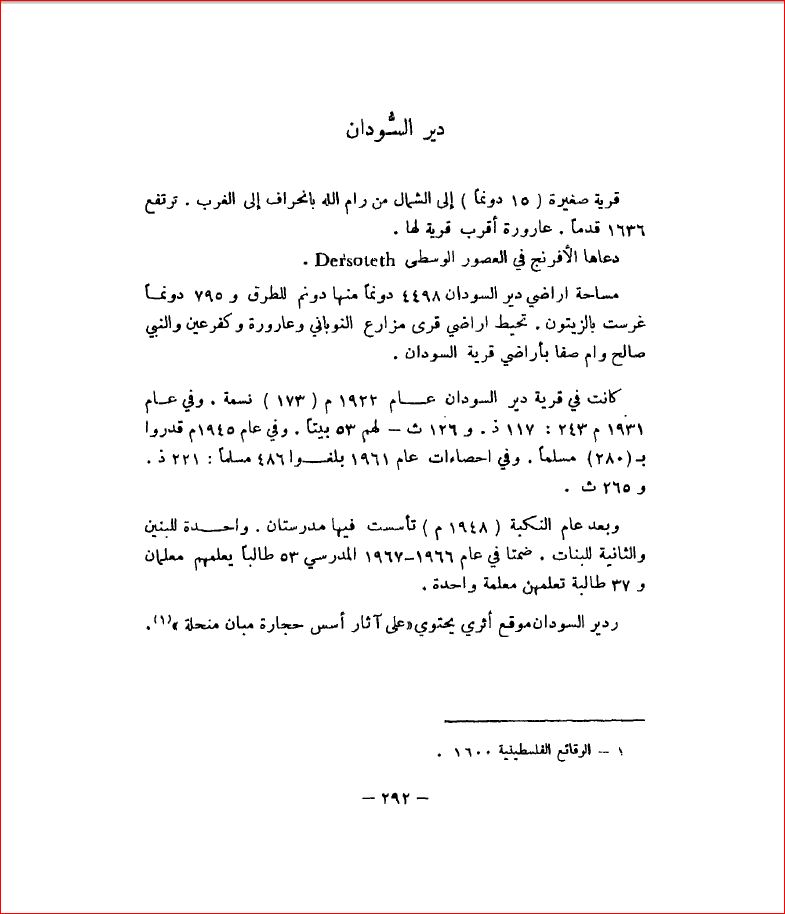 دير السُّودان
قرية صغيرة ( ١٥ دونماً ) إلى الشمال من رام الله بانحراف إلى الغرب . ترتفع
١٦٣٦ قدماً . عارورة أقرب قرية لها .
دعاها الأفرنج في العصور الوسطى Dersoteth .
مساحة اراضي دير السودان ٤٤٩٨ دونماً منها دونم للطرق و ٧٩٥ دونماً
غرست بالزيتون . تحيط اراضي قرى مزارع النوباني وعارورة وكفرعين والنبي
صالح وام صفا بأراضي قرية السودان .
كانت في قرية دير السودان عام ١٩٢٢ م ( ١٧٣ ) نسمة . وفي عام
١٩٣١ م ٢٤٣ : ١١٧ ذ . و ١٢٦ ث – لهم ٥٣ بيتاً . وفي عام ١٩٤٥م قدروا
بـ (٢٨٠) مسلماً . وفي احصاءات عام ١٩٦١ بلغوا ٤٨٦ مسلماً : ٢٢١ ذ .
و ٢٦٥ ث .
وبعد عام النكبة ( ١٩٤٨ م ) تأسست فيها مدرستان . واحدة للبنين
والثانية للبنات . ضمتا في عام ١٩٦٦–١٩٦٧ المدرسي ٥٣ طالباً يعلمهم معلمان
و ٣٧ طالبة تعلمهن معلمة واحدة .
ردير السودان موقع أثري يحتوي «على آثار أسس حجارة مبان منحلة »(١).
١ – الوقائع الفلسطينية ١٦٠٠ .
– ٢٩٢ –